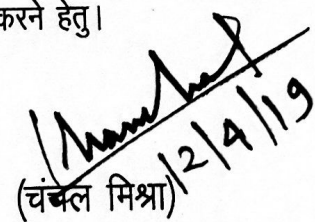 करने हेतु।
12/4/19
(चंचल मिश्रा)